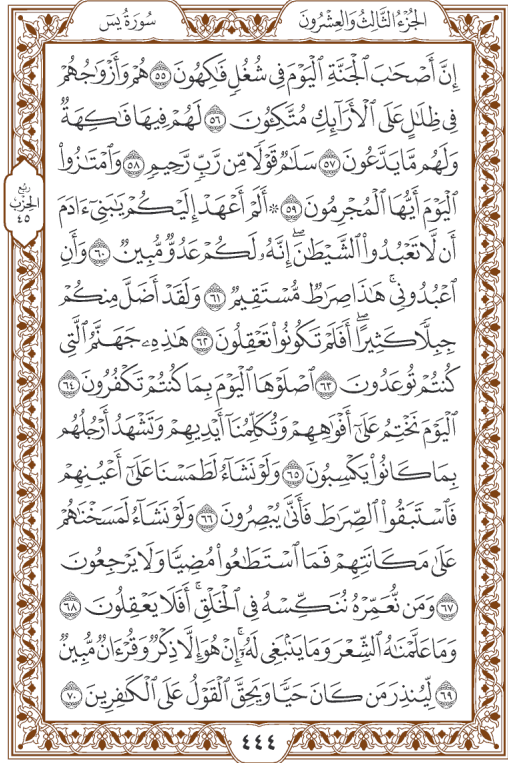 الجُزْءُ الثَّالِثُ وَالْعِشْرُونَ
سُورَةُ يسٓ
إِنَّ أَصْحَٰبَ ٱلْجَنَّةِ ٱلْيَوْمَ فِى شُغُلٍ فَٰكِهُونَ ٥٥ هُمْ وَأَزْوَٰجُهُمْ
فِى ظِلَٰلٍ عَلَى ٱلْأَرَآئِكِ مُتَّكِـُٔونَ ٥٦ لَهُمْ فِيهَا فَٰكِهَةٌ
وَلَهُم مَّا يَدَّعُونَ ٥٧ سَلَٰمٌ قَوْلًا مِّن رَّبٍّ رَّحِيمٍ ٥٨ وَٱمْتَٰزُوا۟
ٱلْيَوْمَ أَيُّهَا ٱلْمُجْرِمُونَ ٥٩ ۞ أَلَمْ أَعْهَدْ إِلَيْكُمْ يَٰبَنِىٓ ءَادَمَ
أَن لَّا تَعْبُدُوا۟ ٱلشَّيْطَٰنَ ۖ إِنَّهُۥ لَكُمْ عَدُوٌّ مُّبِينٌ ٦٠ وَأَنِ
ٱعْبُدُونِى ۚ هَٰذَا صِرَٰطٌ مُّسْتَقِيمٌ ٦١ وَلَقَدْ أَضَلَّ مِنكُمْ
جِبِلًّا كَثِيرًا ۖ أَفَلَمْ تَكُونُوا۟ تَعْقِلُونَ ٦٢ هَٰذِهِۦ جَهَنَّمُ ٱلَّتِى
كُنتُمْ تُوعَدُونَ ٦٣ ٱصْلَوْهَا ٱلْيَوْمَ بِمَا كُنتُمْ تَكْفُرُونَ ٦٤
ٱلْيَوْمَ نَخْتِمُ عَلَىٰٓ أَفْوَٰهِهِمْ وَتُكَلِّمُنَآ أَيْدِيهِمْ وَتَشْهَدُ أَرْجُلُهُم
بِمَا كَانُوا۟ يَكْسِبُونَ ٦٥ وَلَوْ نَشَآءُ لَطَمَسْنَا عَلَىٰٓ أَعْيُنِهِمْ
فَٱسْتَبَقُوا۟ ٱلصِّرَٰطَ فَأَنَّىٰ يُبْصِرُونَ ٦٦ وَلَوْ نَشَآءُ لَمَسَخْنَٰهُمْ
عَلَىٰ مَكَانَتِهِمْ فَمَا ٱسْتَطَٰعُوا۟ مُضِيًّا وَلَا يَرْجِعُونَ
٦٧ وَمَن نُّعَمِّرْهُ نُنَكِّسْهُ فِى ٱلْخَلْقِ ۖ أَفَلَا يَعْقِلُونَ ٦٨
وَمَا عَلَّمْنَٰهُ ٱلشِّعْرَ وَمَا يَنۢبَغِى لَهُۥٓ ۚ إِنْ هُوَ إِلَّا ذِكْرٌ وَقُرْءَانٌ مُّبِينٌ
٦٩ لِّيُنذِرَ مَن كَانَ حَيًّا وَيَحِقَّ ٱلْقَوْلُ عَلَى ٱلْكَٰفِرِينَ ٧٠
ربع
الحزب
٤٥
٤٤٤